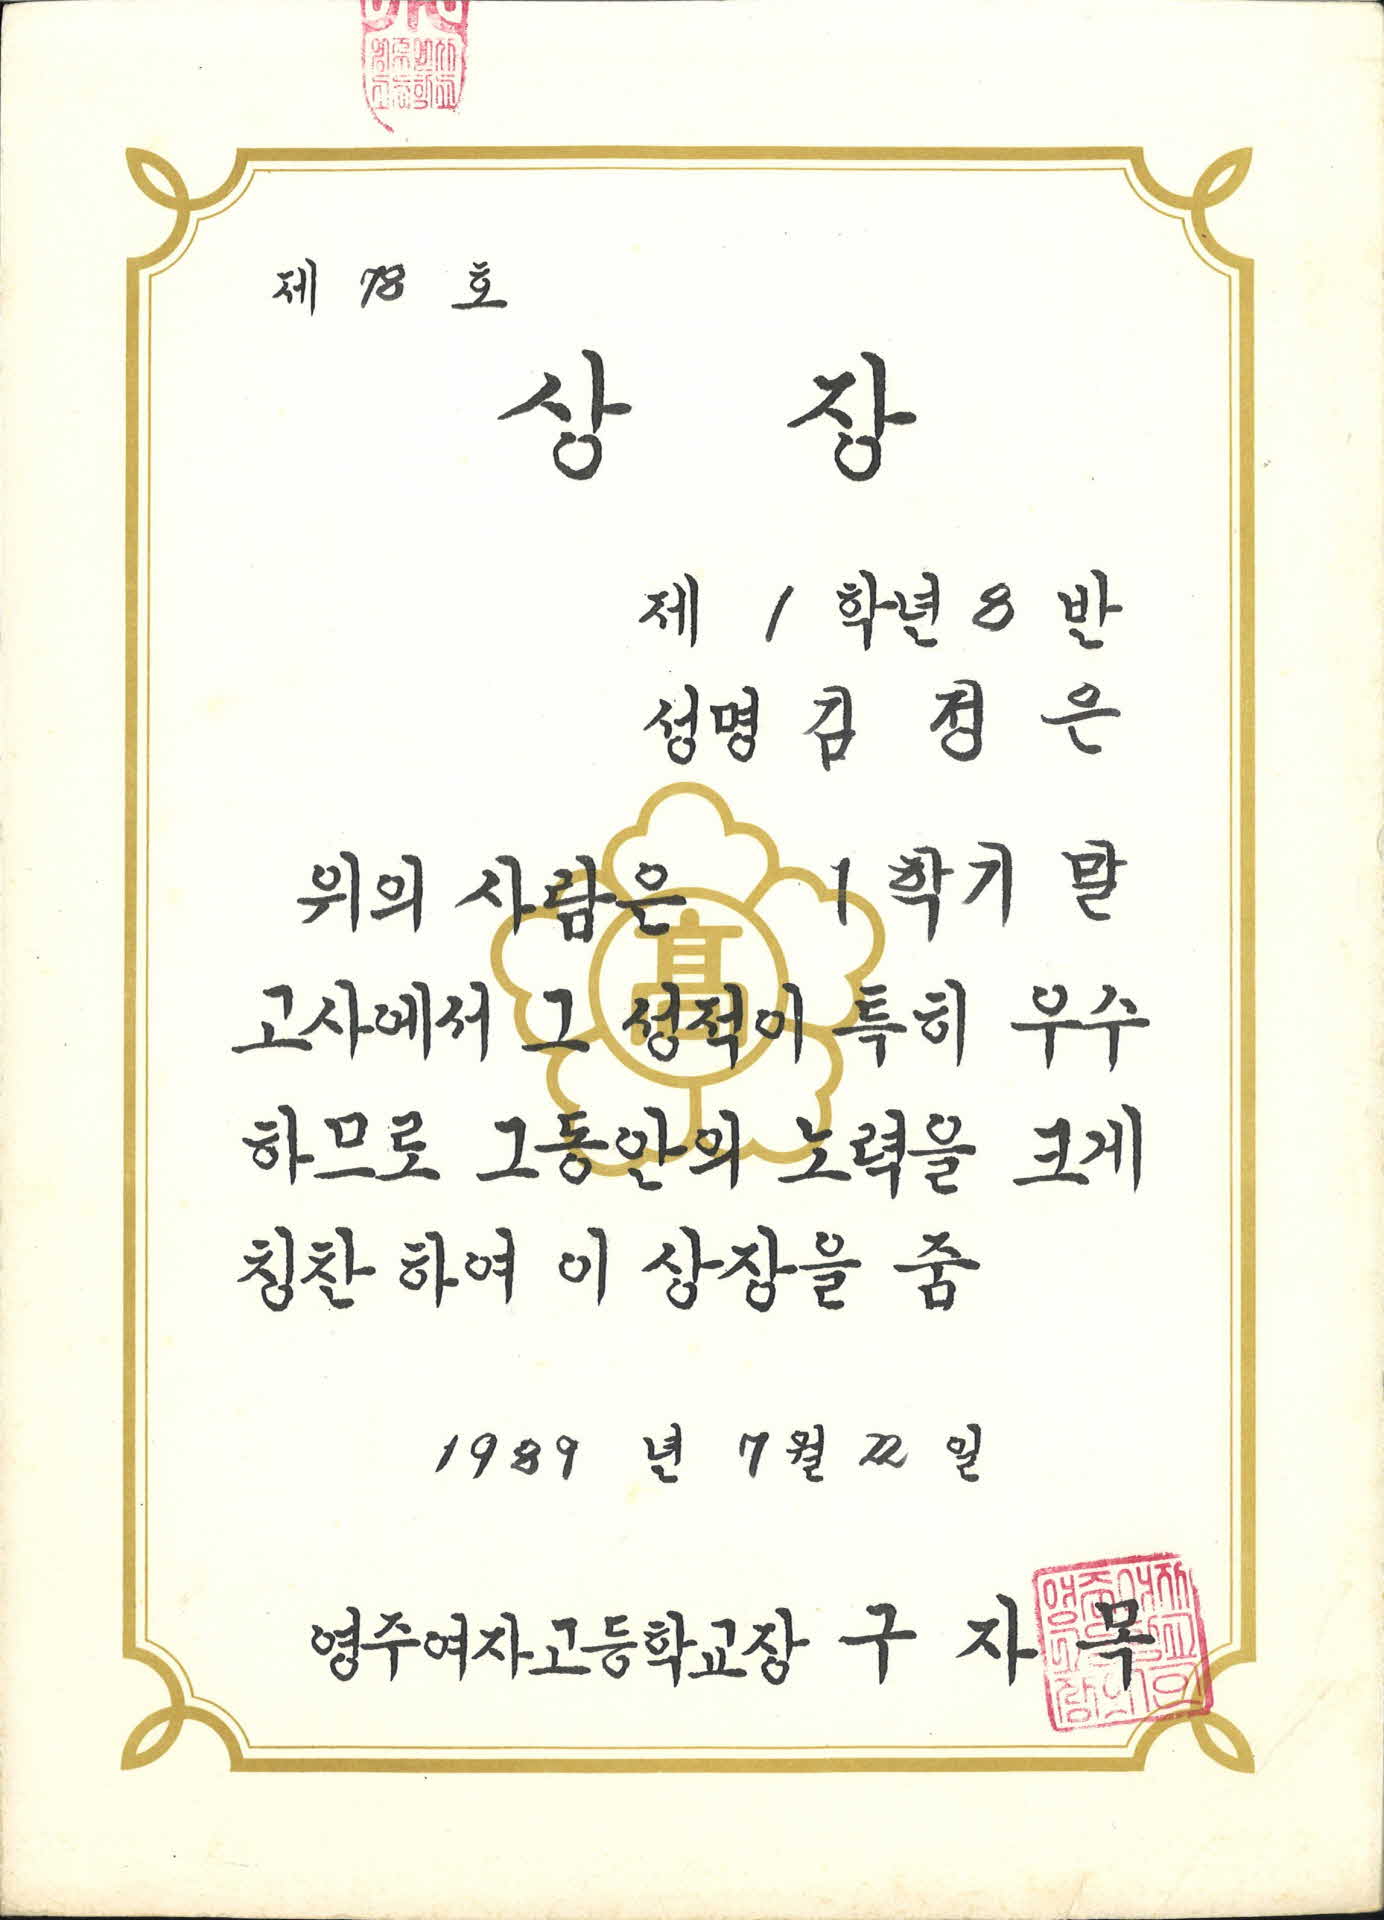 제 78 호
상 장
제 1 학년 8 반
성명 김 정 은
위의 사람은 1 학기 말
고사에서 그 성적이 특히 우수
하므로 그동안의 노력을 크게
칭찬 하여 이 상장을 줌
高
1989 년 7 월 22 일
영주여자고등학교장 구 자 목